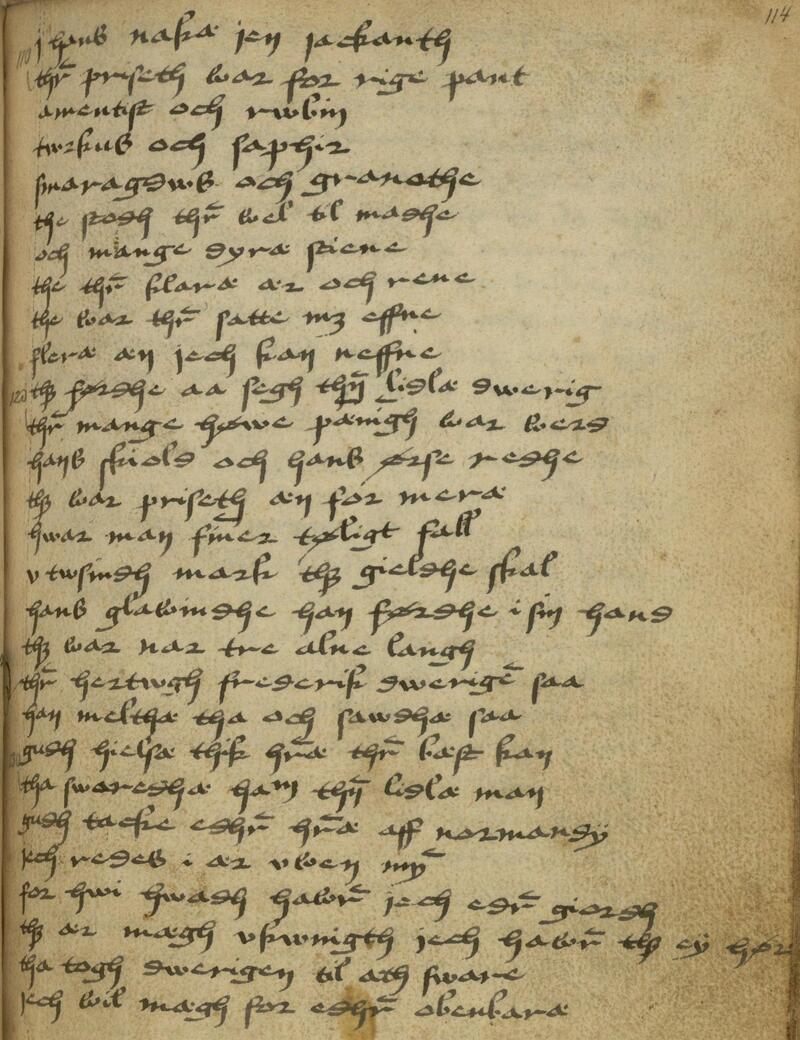 114
j hans nakæ jen jackanth
110
thr̄ priseth war for rige pant
amentist och rwbin
twrkus och saphir
smaragdws och granathe
the stodh thr̄ wel til madhe
och mange dyræ stiene
the thr̄ klaræ ær och rene
the war thr̄ satte mz effne
fleræ æn jech kan neffne
120
thz førdhe aa segh thn̄ lislæ dwerig
thr̄ mange høwe pænigh war werd
hans skiold och hans ørse redhe
thz war priseth æn for meræ
hwar man finer tøligt fall
v twsindh mark thz gieldhe skal
hans glawindhe han førdhe i sin hand
thz war nar tre alne langh
thr̄ hertwgh frederik dwerigē saa
han melthæ tha och sawdhæ saa
gudh hielsæ thik hr̄æ thr̄ bæst kan
tha swaredhæ ham thn̄ lislæ man
gudh tacke edhr̄ hr̄æ aff normandy
jech redes i ær vwen my̅
for hwi hwadh hawr̄ jech edr̄ giordh
thz ær mægh vkwnigth jech hawr̄ thz ey hør
tha togh dwerigen til ath sware
jech wil mægh for edhr̄ obenbaræ